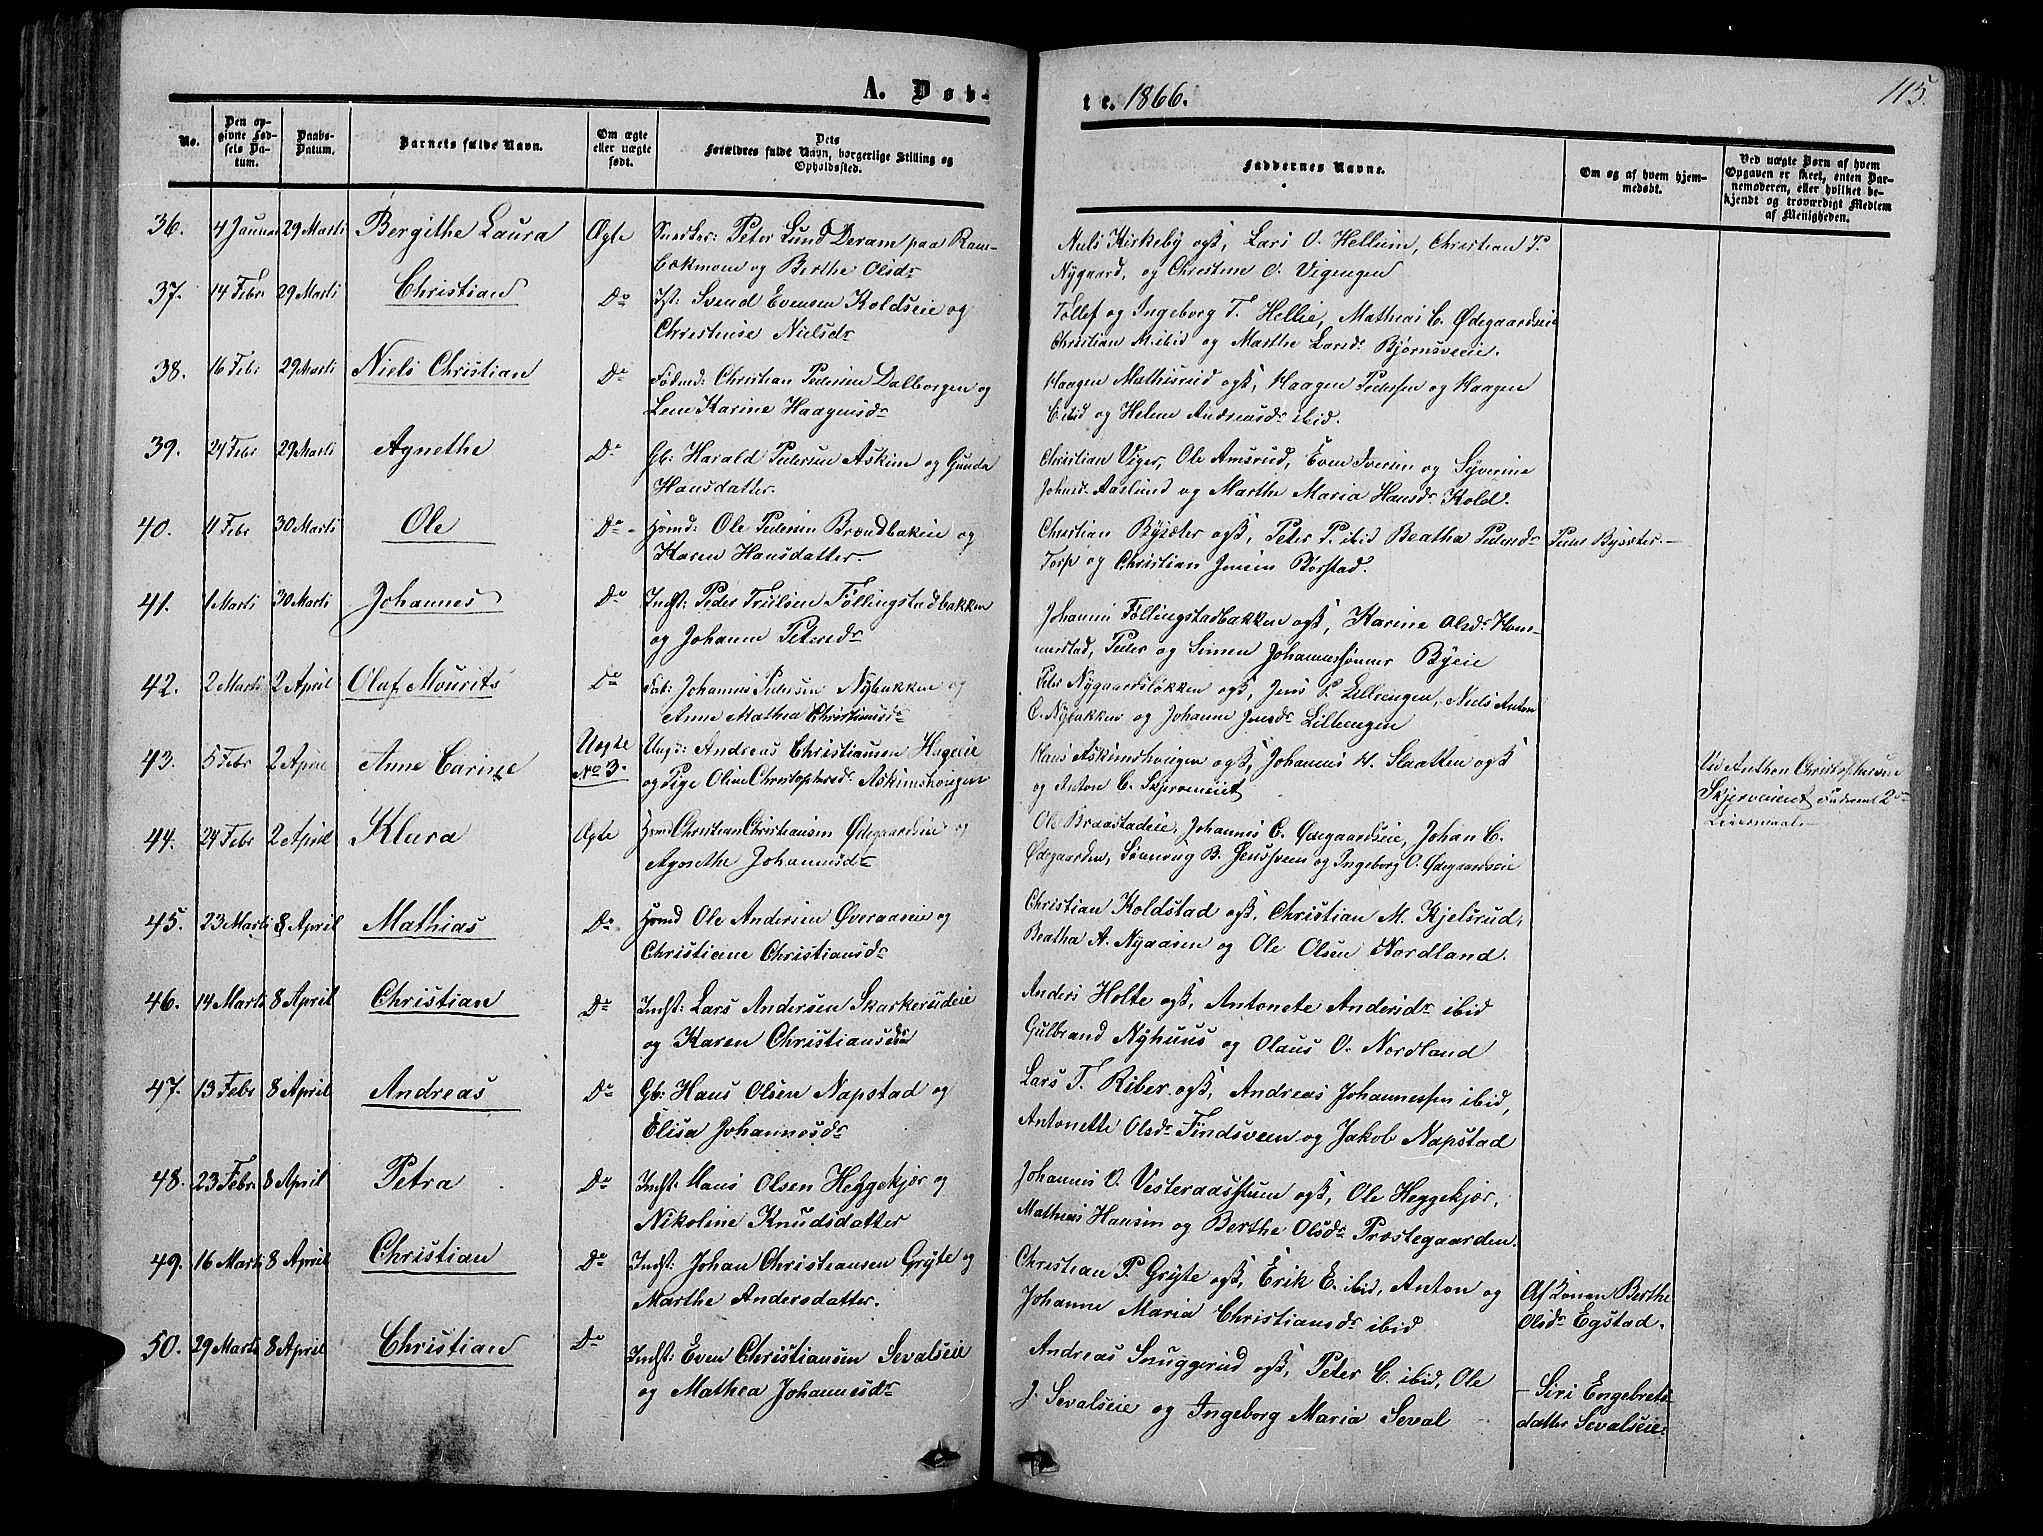 A. Døb-
te. 1866.
115.
No.
Den op-
givne Fød-
sels Da-
tum.
Daabs-
Datum.
Barnets fulde Navn.
Om ægte
eller uægte
født.
Dets
Forældres fulde Navn, borgerlige Stilling og
Opholdssted.
Faddernes Navne.
Om og af hvem hjem-
medøbt.
Ved uægte Børn af hvem
Opgaven er skeet, enten Bar-
nemoderen, eller hvilket be-
kjendt og troværdigt Medlem
af Menigheden.
36. 4 Januar 29 Marti Bergithe Laura Ægte Snedker: Peter Lund Deram paa Ram-
bekmoen og Berthe Olsdr
Niels Kirkeby ogß, Lars O. Hellum, Christian P.
Nygaard, og Christine O. Vigengen
37. 14 Febr 29 Marti Christian Do Ist: Svend Evensen Koldseie og
Christense Nielsdr
Tollef og Ingeborg T. Hellie, Mathias C. Ødegaardseie
Christian M. ibid og Marthe Larsdr Bjørnsveie.
38. 16 Febr 29 Marti Niels Christian Do Fødmd: Christian Pedersen Dalborgen og
Lene Karine Haagensdr
Haagen Mathisrud ogß, Haagen Pedersen og Haagen
C. ibid og Helene Andreasdr ibid.
39. 24 Febr 29 Marti Agnethe Do Gb: Harald Pedersen Askim og Gunda
Hansdatter.
Christian Viger, Ole Amsrud, Even Iversen og Syverine
Johnsdr Aaslund og Marthe Maria Hansdr Kold.
40. 11 Febr 30 Marti Ole Do Hsmd: Ole Pedersen Brondbakken og
Karen Hansdatter.
Christian Bysæter ogß, Peter P. ibid Beatha Pedersdr
Torp og Christian Jensen Borstad.
Peder Bysæter.
41. 1 Marti 30 Marti Johannes Do Indst: Peder Trulsen Føllingstadbakken
og Johanne Petersdr
Johannes Føllingstadbakken ogß, Karine Olsdr Hom-
merstad, Peder og Simen Johannessønner Byeie
42. 2 Marti 2 April Olaf Mourits Do Fab: Johannes Pedersen Nybakken og
Anne Mathea Christiansdr
Peter Nygaardsløkken ogß, Jens P. Lilleengen, Niels Anton
C. Nybakken og Johanne Jensdr Lilleengen
43. 5 Febr 2 April Anne Carine Uægte
No 3. Ungk: Andreas Christiansen Hageeie
og Pige Oline Christophersdr Askimshougen
Hans Askimshougen ogß, Johannes H. Slaatten ogß
og Anton C. Skjerveneiet
Ved Anthon Christophersen
Skjerveneiet Faderens 2det
Leiermaal
44. 24 Febr 2 April Klara Ægte Hsmd Christian Christiansen Ødegaardseie og
Agnethe Johannesdr
Ole Braastadeie, Johannes C. Ødegaardseie, Johan C.
Ødegaarden, Sønnoug B. Jensveen og Ingeborg O. Ødegaardseie
45. 23 Marti 8 April Mathias Do Hsmd Ole Andersen Øveraaseie og
Christiane Christiansdr
Christian Koldstad ogß, Christian M. Kjelsrud,
Beatha A. Nyaasen og Ole Olsen Nordland.
46. 14 Marti 8 April Christian Do Indst: Lars Andersen Skarkerudeie
og Karen Christiansdr
Anders Holte ogß, Antonete Andersdr ibid
Gulbrand Nyhuus og Olaus O. Nordland
47. 13 Febr 8 April Andreas Do Gb: Hans Olsen Napstad og
Elisa Johannesdr
Lars T. Riber ogß, Andreas Johannessen ibid,
Antonette Olsdr Findsveen og Jakob Napstad
48. 23 Febr 8 April Petra Do Indst: Hans Olsen Heggekjær og
Nikoline Knudsdatter
Johannes O. Vesteraasstuen ogß, Ole Heggekjær,
Mathias Hansen og Berthe Olsdr Præstegaarden.
49. 16 Marti 8 April Christian Do Indst: Johan Christiansen Gryte og
Marthe Andersdatter.
Christian P. Gryte ogß, Erik E. ibid, Anton og
Johanne Maria Christiansdr ibid
Af Konen Berthe
Olsdr Egstad.
50. 29 Marti 8 April Christian Do Indst: Even Christiansen Sevalseie
og Mathea Johannesdr
Andreas Snuggerud ogß, Peter C. ibid, Ole
J. Sevalseie og Ingeborg Maria Seval
- Siri Engebrets-
datter Sevalseie.